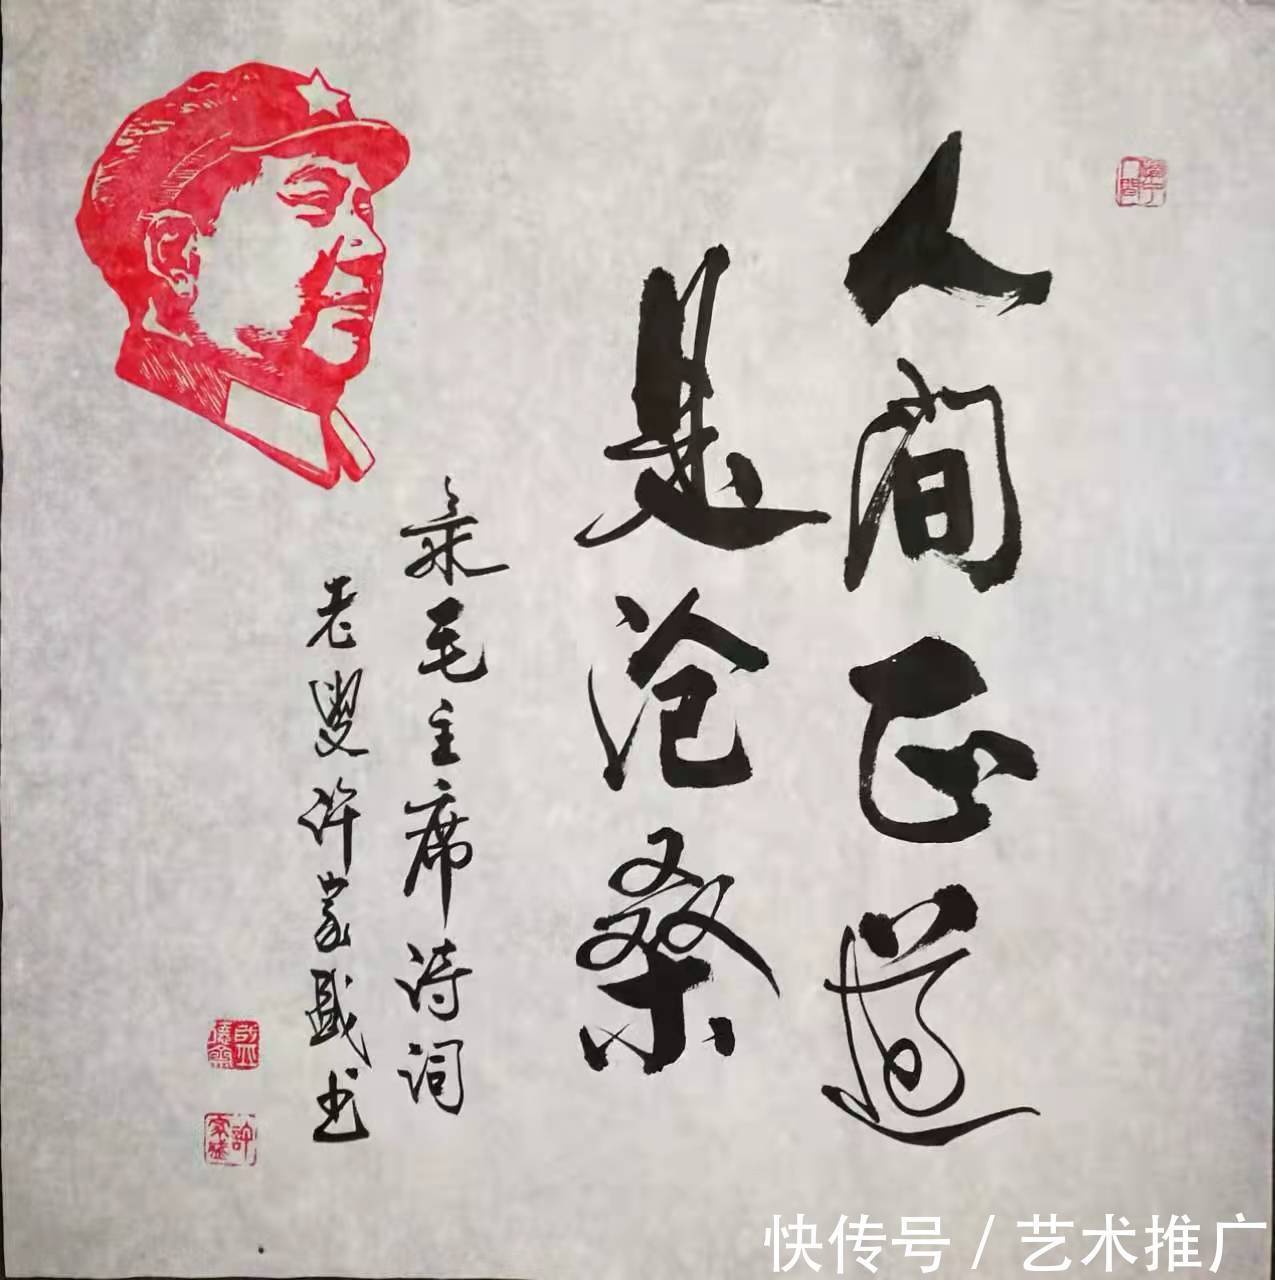 人间正道
是沧桑
录毛主席诗词
老叟许家盛书
快传号 / 艺术推广